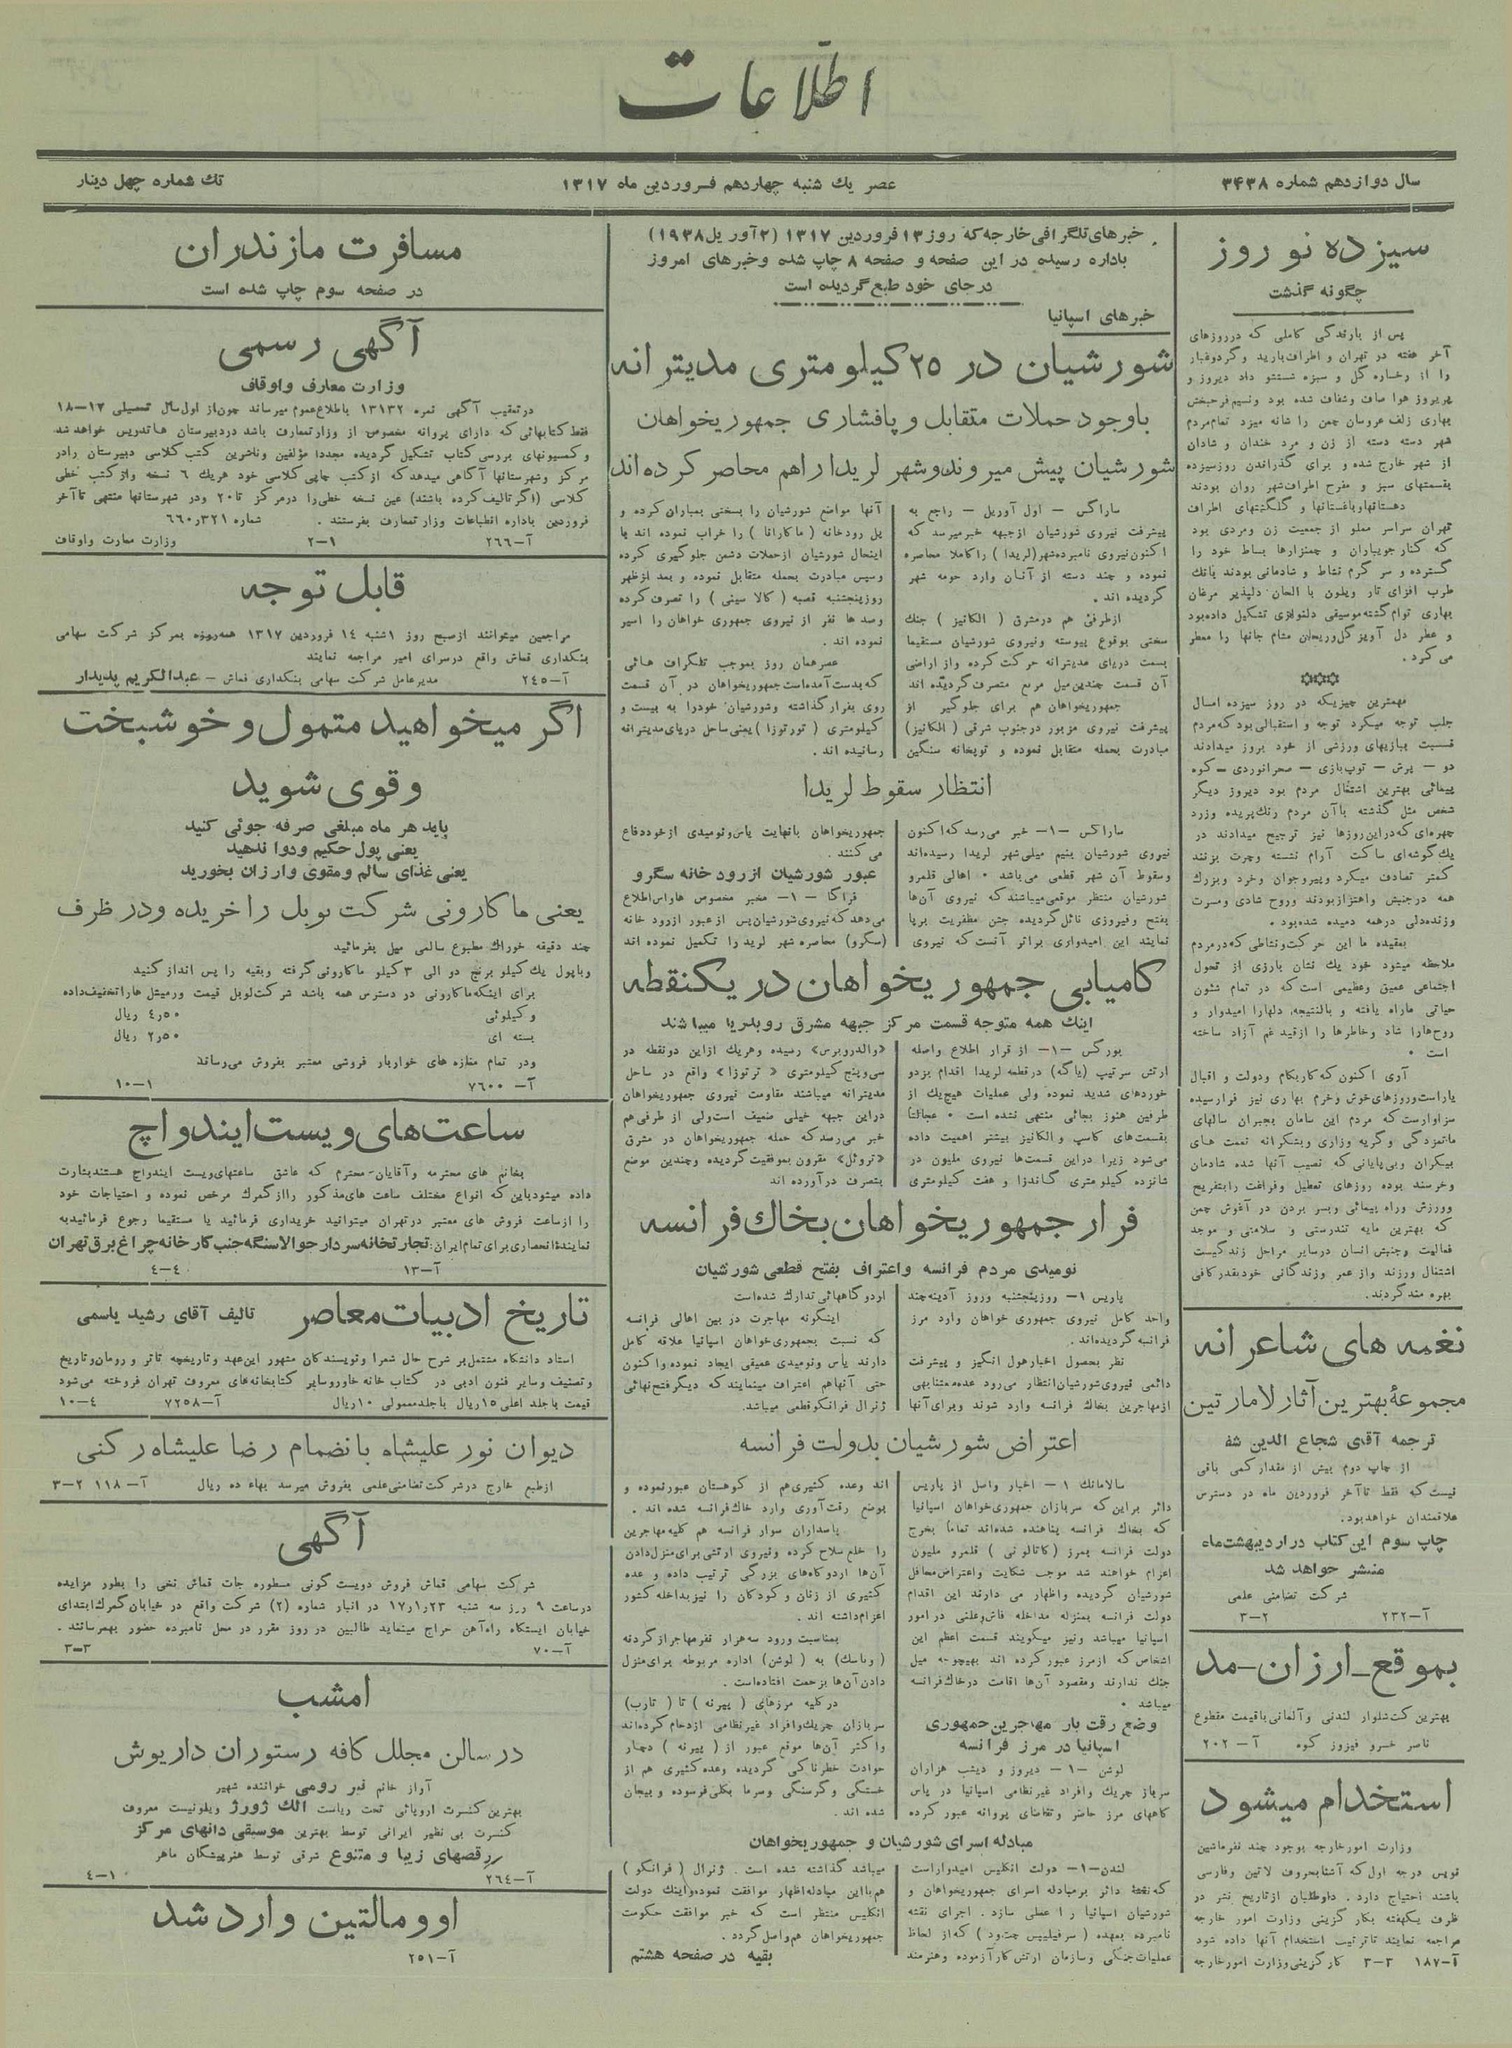 اطلاعات
سال دوازدهم شماره ۳۴۳۸
عصر یك شنبه چهاردهم فروردین ماه ۱۳۱۷
تك شماره چهل دینار
سیزده نوروز
چگونه گذشت
پس از بارندگی کاملی که درروزهای
آخر هفته در تهران و اطراف بارید و گردوغبار
را از رخساره گل و سبزه شستشو داد دیروز و
پریروز هوا صاف و شفاف شده بود ونسیم فرحبخش
بهاری زلف عروسان چمن را شانه میزد تمام مردم
شهر دسته دسته از زن و مرد خندان و شادان
از شهر خارج شده و برای گذراندن روزسیزده
بقسمتهای سبز و مفرح اطراف شهر روان بودند
دهستانها و باغستانها و گلگشتهای اطراف
تهران سراسر مملو از جمعیت زن ومردی بود
که کنار جویباران و چمنزارها بساط خود را
گسترده و سر گرم نشاط و شادمانی بودند بانك
طرب افزای تار ویلون با الحان دلپذیر مرغان
بهاری توام گشته موسیقی دلنوازی تشکیل داده بود
و عطر دل آویز گل وریحان مشام جانها را معطر
می کرد .
مهمترین چیزیکه در روز سیزده امسال
جلب توجه میکرد توجه و استقبالی بود که مردم
نسبت ببازیهای ورزشی از خود بروز میدادند
دو – پرش – توپ بازی – صحرانوردی – کوه
پیمائی بهترین اشتغال مردم بود دیروز دیگر
شخص مثل گذشته باآن مردم رنك پریده وزرد
چهره‌ای که دراین روزها نیز ترجیح میدادند در
یك گوشه‌ای ساکت آرام نشسته وچرت بزنند
کمتر تصادف میکرد وپیروجوان وخرد وبزرك
همه درجنبش واهتزاز بودند وروح شادی ومسرت
وزنده دلی درهمه دمیده شده بود .
بعقیده ما این حرکت ونشاطی که در مردم
ملاحظه میشود خود یك نشان بارزی از تحول
اجتماعی عمیق وعظیمی است که در تمام شئون
حیاتی ماراه یافته و بالنتیجه دلهارا امیدوار و
روح‌هارا شاد وخاطرها را از قید غم آزاد ساخته
است .
آری اکنون که کاربکام ودولت و اقبال
یاراست وروزهای خوش وخرم بهاری نیز فرارسیده
سزاوارست که مردم این سامان بجبران سالهای
ماتمزدگی وگریه وزاری وبشکرانه نعمت های
بیکران وبی پایانی که نصیب آنها شده شادمان
وخرسند بوده روزهای تعطیل وفراغت رابتفریح
وورزش وراه پیمائی وبسر بردن در آغوش چمن
که بهترین مایه تندرستی و سلامتی و موجد
فعالیت وجنبش انسان درسایر مراحل زندگیست
اشتغال ورزند واز عمر وزندگانی خود بقدر کافی
بهره مند گردند.
نغمه های شاعرانه
مجموعهٔ بهترین آثار لامارتین
ترجمه آقای شجاع الدین شفا
از چاپ دوم بیش از مقدار کمی باقی
نیست که فقط تاآخر فروردین ماه در دسترس
علاقمندان خواهد بود.
چاپ سوم این کتاب در اردیبهشت ماه
منتشر خواهد شد
شرکت تضامنی علمی
آ–۲۳۲ ۲–۳
بموقع-ارزان-مد
بهترین کت شلوار لندنی وآلمانی باقیمت مقطوع
ناصر خسرو فیروز کوه آ–۲۰۲
استخدام میشود
وزارت امور خارجه بوجود چند نفر ماشین
نویس درجه اول که آشنا بحروف لاتین وفارسی
باشند احتیاج دارد . داوطلبان ازتاریخ نشر در
ظرف یکهفته بکار گزینی وزارت امور خارجه
مراجعه نمایند تا ترتیب استخدام آنها داده شود
آ–۱۸۷ ۳–۳ کار گزینی وزارت امور خارجه
خبرهای تلگرافی خارجه که روز ۱۳ فروردین ۱۳۱۷ (۲ آوریل ۱۹۳۸)
باداره رسیده در این صفحه و صفحه ۸ چاپ شده و خبرهای امروز
درجای خود طبع گردیده است
خبرهای اسپانیا
شورشیان در ۲۵ کیلومتری مدیترانه
باوجود حملات متقابل و پافشاری جمهوریخواهان
شورشیان پیش میروند و شهر لریدا را هم محاصر کرده‌اند
ساراگس – اول آوریل – راجع به
پیشرفت نیروی شورشیان ازجبهه خبر میرسد که
اکنون نیروی نامبرده شهر (لریدا) را کاملا محاصره
نموده و چند دسته از آنان وارد حومه شهر
گردیده اند .
ازطرفی هم درمشرق ( الکانیز ) جنك
سختی بوقوع پیوسته ونیروی شورشیان مستقیما
بسمت دریای مدیترانه حرکت کرده واز اراضی
آن قسمت چندین میل مربع متصرف گردیده اند
جمهوریخواهان هم برای جلوگیر از
پیشرفت نیروی مزبور در جنوب شرقی (الکانیز)
مبادرت بحمله متقابل نموده و توپخانه سنگین
آنها مواضع شورشیان را بسختی بمباران کرده و
پل رودخانه ( ماکارانا ) را خراب نموده اند با
اینحال شورشیان ازحملات دشمن جلوگیری کرده
وسپس مبادرت بحمله متقابل نموده و بعد ازظهر
روز پنجشنبه قصبه ( کالا سیتی ) را تصرف کرده
وصدها نفر از نیروی جمهوری خواهان را اسیر
نموده اند.
عصر همان روز بموجب تلگراف هائی
که بدست آمده است جمهوریخواهان در آن قسمت
روی بفرار گذاشته وشورشیان خودرا به بیست و
کیلومتری ( تورتوزا ) یعنی ساحل دریای مدیترانه
رسانیده اند .
انتظار سقوط لریدا
ساراکس –۱– خبر می‌رسد که اکنون
نیروی شورشیان بنیم میلی شهر لریدا رسیده‌اند
وسقوط آن شهر قطعی می‌باشد . اهالی قلمرو
شورشیان منتظر موقعی میباشند که نیروی آن‌ها
بفتح وفیروزی نائل گردیده جشن مظفریت برپا
نمایند این امیدواری براثر آنست که نیروی
جمهوریخواهان بانهایت یاس ونومیدی ازخود دفاع
می کنند .
عبور شورشیان از رود خانه سگرو
فراگا – ۱– مخبر مخصوص هاواس اطلاع
می‌دهد که نیروی شورشیان پس از عبور از رود خانه
(سگرو) محاصره شهر لریدا را تکمیل نموده اند
کامیابی جمهوریخواهان در یکنقطه
اینك همه متوجه قسمت مرکز جبهه مشرق رو بدریا میباشند
بورکس –۱– از قرار اطلاع واصله
ارتش سرتیپ (یاگه) درقطعه لریدا اقدام بزدو
خوردهای شدید نموده ولی عملیات هیچیك از
طرفین هنوز بجائی منتهی نشده است . عجالتاً
بقسمت‌های کاسپ و الکانیز بیشتر اهمیت داده
می‌شود زیرا دراین قسمت‌ها نیروی ملیون در
شانزده کیلومتری گاندزا و هفت کیلومتری
«والدروبرس» رسیده وهریك ازاین دونقطه در
سی وپنج کیلومتری « ترتوزا » واقع در ساحل
مدیترانه میباشند مقاومت نیروی جمهوریخواهان
دراین جبهه خیلی ضعیف است ولی از طرفی هم
خبر می‌رسد که حمله جمهوریخواهان در مشرق
«تروئل» مقرون بموفقیت گردیده وچندین موضع
بتصرف درآورده اند
فرار جمهوریخواهان بخاك فرانسه
نومیدی مردم فرانسه واعتراف بفتح قطعی شورشیان
پاریس ۱– روز پنجشنبه وروز آدینه چند
واحد کامل نیروی جمهوری خواهان وارد مرز
فرانسه گردیده‌اند.
نظر بحصول اخبار هول انگیز و پیشرفت
دائمی نیروی شورشیان انتظار می‌رود عده معتنابهی
ازمهاجرین بخاك فرانسه وارد شوند وبرای آنها
اردو گاههائی تدارك شده‌است
اینگونه مهاجرت در بین اهالی فرانسه
که نسبت بجمهوری‌خواهان اسپانیا علاقه کامل
دارند یأس ونومیدی عمیقی ایجاد نموده واکنون
حتی آنها هم اعتراف مینمایند که دیگر فتح نهائی
ژنرال فرانکو قطعی میباشد.
اعتراض شورشیان بدولت فرانسه
سالامانك ۱ – اخبار واصل از پاریس
دائر براین که سربازان جمهوری‌خواهان اسپانیا
که بخاك فرانسه پناهنده شده‌اند تماماً بخرج
دولت فرانسه بمرز ( کاتالونی ) قلمرو ملیون
اعزام خواهند شد موجب شکایت واعتراض محافل
شورشیان گردیده واظهار می دارند این اقدام
دولت فرانسه بمنزله مداخله فاش وعلنی در امور
اسپانیا میباشد ونیز میگویند قسمت اعظم این
اشخاص که ازمرز عبور کرده اند بهیچوجه میل
جنك ندارند ومقصود آن‌ها اقامت درخاك فرانسه
میباشد .
وضع رقت بار مهاجرین جمهوری
اسپانیا در مرز فرانسه
لوشن –۱– دیروز و دیشب هزاران
سرباز چریك وافراد غیر نظامی اسپانیا در پاس
گاههای مرز حاضر وتقاضای پروانه عبور کرده
اند وعده کثیری هم از کوهستان عبور نموده و
بوضع رقت آوری وارد خاك فرانسه شده اند .
پاسداران سوار فرانسه هم کلیه مهاجرین
را خلع سلاح کرده ونیروی ارتشی برای منزل دادن
آن‌ها اردوگاه‌های بزرگی ترتیب داده و عده
کثیری از زنان و کودکان را نیز بداخله کشور
اعزام داشته اند .
بمناسبت ورود سه هزار نفر مهاجر از گردنه
به ( لوشن) اداره مربوطه برای منزل
دادن آن‌ها بزحمت افتاده است.
در کلیه مرزهای ( پیرنه ) تا ( تارب)
سربازان چریك وافراد غیر نظامی ازدحام کرده‌اند
واکثر آن‌ها موقع عبور از ( پیرنه ) دچار
حوادث خطرناکی گردیده وعده کثیری هم از
خستگی وگرسنگی وسرما بکلی فرسوده و بیجان
شده اند .
مبادله اسرای شورشیان و جمهوریخواهان
لندن–۱– دولت انگلیس امیدوار است
که نقشه دائر بر مبادله اسرای جمهوریخواهان و
شورشیان اسپانیا را عملی سازد. اجرای نقشه
نامبرده بعهده ( سرفیلیپس چتود ) که از لحاظ
عملیات جنگی وسازمان ارتش کار آزموده وهنرمند
میباشد گذاشته شده است . ژنرال ( فرانکو )
هم بااین مبادله اظهار موافقت نموده واینك دولت
انگلیس منتظر است که خبر موافقت حکومت
جمهوریخواهان هم واصل گردد.
بقیه در صفحه هشتم
مسافرت مازندران
در صفحه سوم چاپ شده است
آگهی رسمی
وزارت معارف واوقاف
درتعقیب آگهی نمره ۱۳۱۳۲ باطلاع عموم میرساند چون از اول سال تحصیلی ۱۷–۱۸
فقط کتابهائی که دارای پروانه مخصوص از وزارتمعارف باشد دردبیرستان ها تدریس خواهد شد
و کمسیونهای بررسی کتاب تشکیل گردیده مجددا مؤلفین وناشرین کتب کلاسی دبیرستان رادر
مرکز وشهرستانها آگاهی میدهد که از کتب چاپی کلاسی خود هریك ۶ نسخه واز کتب خطی
کلاسی (اگر تالیف کرده باشند) عین نسخه خطی را درمرکز تا۲۰ ودر شهرستانها منتهی تاآخر
فروردین باداره انطباعات وزارتمعارف بفرستند . شماره ۶۶۰٫۳۲۱
آ–۲۶۶ ۱–۲ وزارت معارت واوقاف
قابل توجه
مراجعین میتوانند ازصبح روز ۱شنبه ۱۴ فروردین ۱۳۱۷ همه‌روزه بمرکز شرکت سهامی
بنکداری قماش واقع درسرای امیر مراجعه نمایند
آ–۲۴۵ مدیرعامل شرکت سهامی بنکداری قماش – عبدالکریم پدیدار
اگر میخواهید متمول و خوشبخت
و قوی شوید
باید هر ماه مبلغی صرفه جوئی کنید
یعنی پول حکیم ودوا ندهید
یعنی غذای سالم ومقوی وارزان بخورید
یعنی ماکارونی شرکت بوبل را خریده ودر ظرف
چند دقیقه خوراك مطبوع سالمی میل بفرمائید
وباپول یك کیلو برنج دو الی ۳ کیلو ماکارونی گرفته وبقیه را پس انداز کنید
برای اینکه ماکارونی در دسترس همه باشد شرکت لوبل قیمت ورمیشل هارا تخفیف داده
و کیلوئی ۴٫۵۰ ریال
بسته ای ۲٫۵۰ ریال
ودر تمام مغازه های خواربار فروشی معتبر بفروش می‌رساند
آ– ۷۶۰۰ ۱–۱۰
ساعت‌های ویست ایندواچ
بخانم های محترمه وآقایان محترم که عاشق ساعتهای ویست ایندواچ هستند بشارت
داده میشود باین که انواع مختلف ساعت های مذکور رااز گمرك مرخص نموده و احتیاجات خود
را ازساعت فروش های معتبر درتهران میتوانید خریداری فرمائید یا مستقیما رجوع فرمائید به
نمایندهٔ انحصاری برای تمام ایران: تجارتخانه سردار حوالاسنگه جنب کارخانه چراغ برق تهران
آ–۱۳ ۴–۴
تاریخ ادبیات معاصر تالیف آقای رشید یاسمی
استاد دانشگاه مشتمل بر شرح حال شعرا ونویسندکان مشهور این عهد وتاریخچه تاتر و رومان وتاریخ
وتصنیف وسایر فنون ادبی در کتاب خانه خاور وسایر کتابخانه‌های معروف تهران فروخته می‌شود
قیمت باجلد اعلی ۱۵ ریال باجلد معمولی ۱۰ ریال آ–۷۲۵۸ ۴–۱۰
دیوان نور علیشاه بانضمام رضا علیشاه رکنی
ازطبع خارج درشرکت تضامنی علمی بفروش میرسد بهاء ده ریال آ– ۱۱۸ ۲–۳
آگهی
شرکت سهامی قماش فروش دویست گونی مسطوره جات قماش نخی را بطور مزایده
درساعت ۹ روز سه شنبه ۱۷٫۱٫۲۳ در انبار شماره (۲) شرکت واقع در خیابان گمرك ابتدای
خیابان ایستگاه راه‌آهن حراج مینماید طالبین در روز مقرر در محل نامبرده حضور بهمرسانند .
آ–۷۰ ۳–۳
امشب
درسالن مجلل کافه رستوران داریوش
آواز خانم قمر رومی خواننده شهیر
بهترین کنسرت اروپائی تحت ریاست الك ژورژ ویلونیست معروف
کنسرت بی نظیر ایرانی توسط بهترین موسیقی دانهای مرکز
رقصهای زیبا و متنوع شرقی توسط هنرپیشگان ماهر
آ–۲۶۴ ۱–۴
اوومالتین وارد شد
آ–۲۵۱